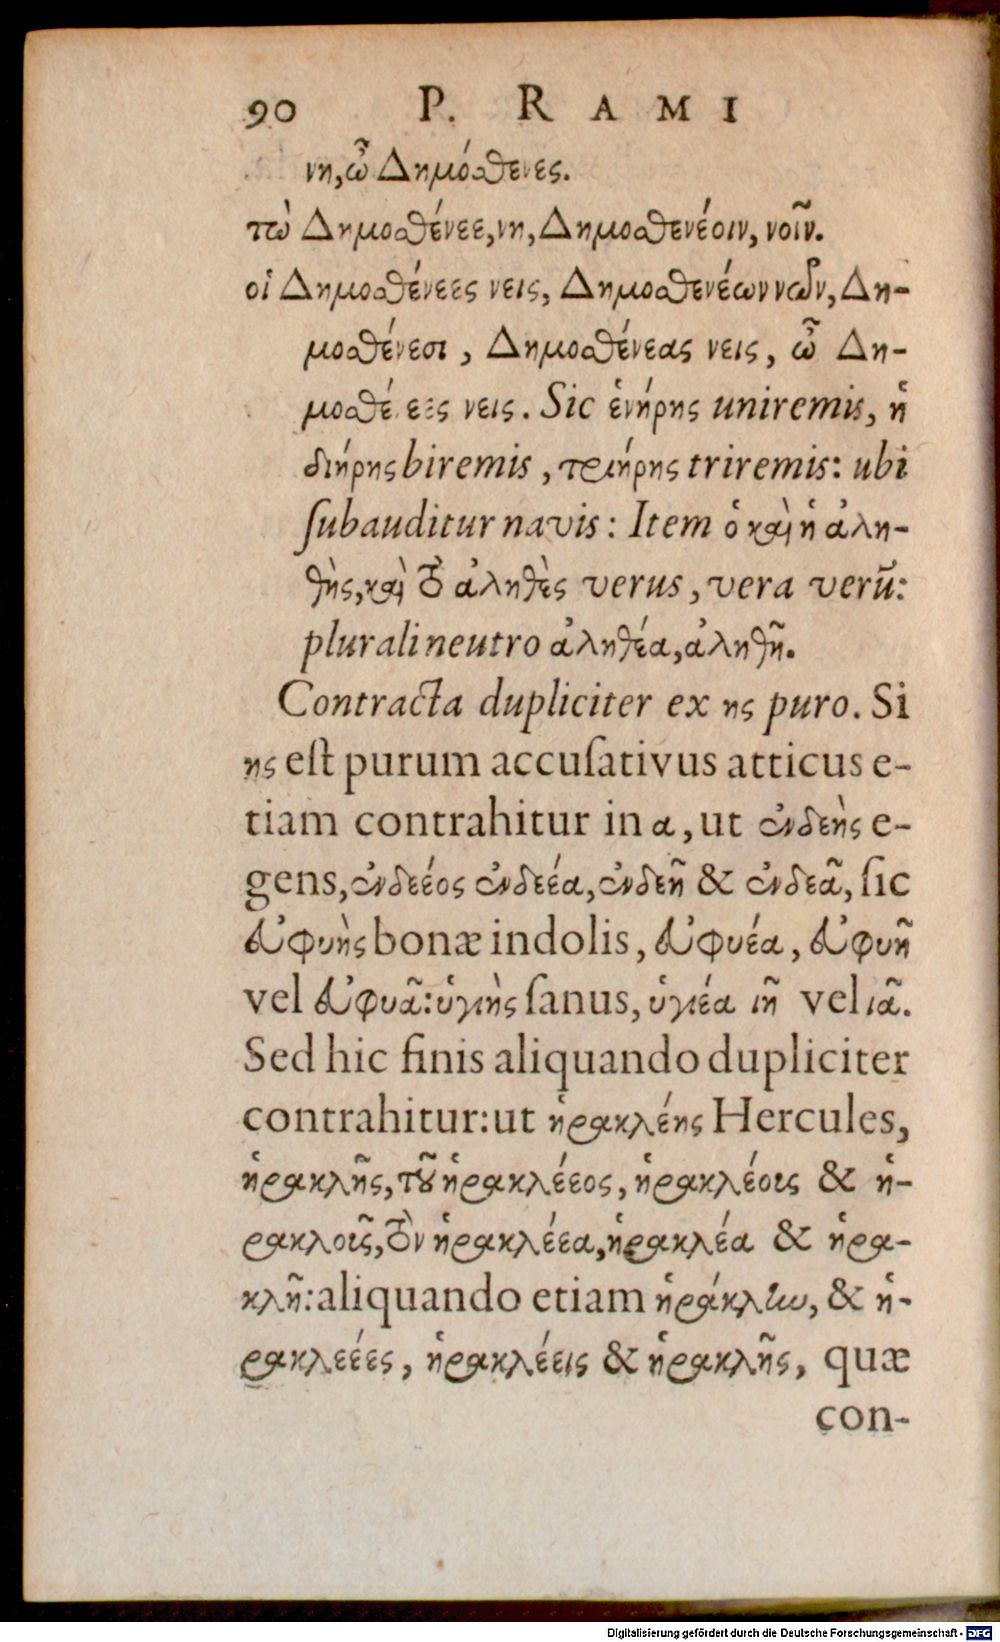 90 P. RAMI
νη, ὦ Δημόσθενες.
τὼ Δημοσθένεε, νη, Δημοσθενέοιν, νοῖν.
οἱ Δημοσθένεες νεις, Δημοσθενέων νῶν, Δη-
μοσθένεσι, Δημοσθένεας νεις, ὦ Δη-
μοσθέ εες νεις. Sic ἑνήρης uniremis, ἡ
διήρης biremis, τριήρης triremis: ubi
ſubauditur navis: Item ὁ καὶ ἡ ἀλη-
θὴς, καὶ τὸ ἀληθὲς verus, vera verũ:
plurali neutro ἀληθέα, ἀληθῆ.
Contracta dupliciter ex ης puro. Si
ης eſt purum accuſativus atticus e-
tiam contrahitur in α, ut ἐνδεὴς e-
gens, ἐνδεέος ἐνδεέα, ἐνδεῆ & ἐνδεᾶ, ſic
εὐφυὴς bonæ indolis, εὐφυέα, εὐφυῆ
vel εὐφυᾶ: ὑγιὴς ſanus, ὑγιέα ιῆ vel ιᾶ.
Sed hic finis aliquando dupliciter
contrahitur: ut ἡρακλέης Hercules,
ἡρακλῆς, τοῦ ἡρακλέεος, ἡρακλέους & ἡ-
ρακλοῦς, τὸν ἡρακλέεα, ἡρακλέα & ἡρα-
κλῆ: aliquando etiam ἡράκλην, & ἡ-
ρακλεέες, ἡρακλέεις & ἡρακλῆς, quæ
con-
Digitalisierung gefördert durch die Deutsche Forschungsgemeinschaft - DFG